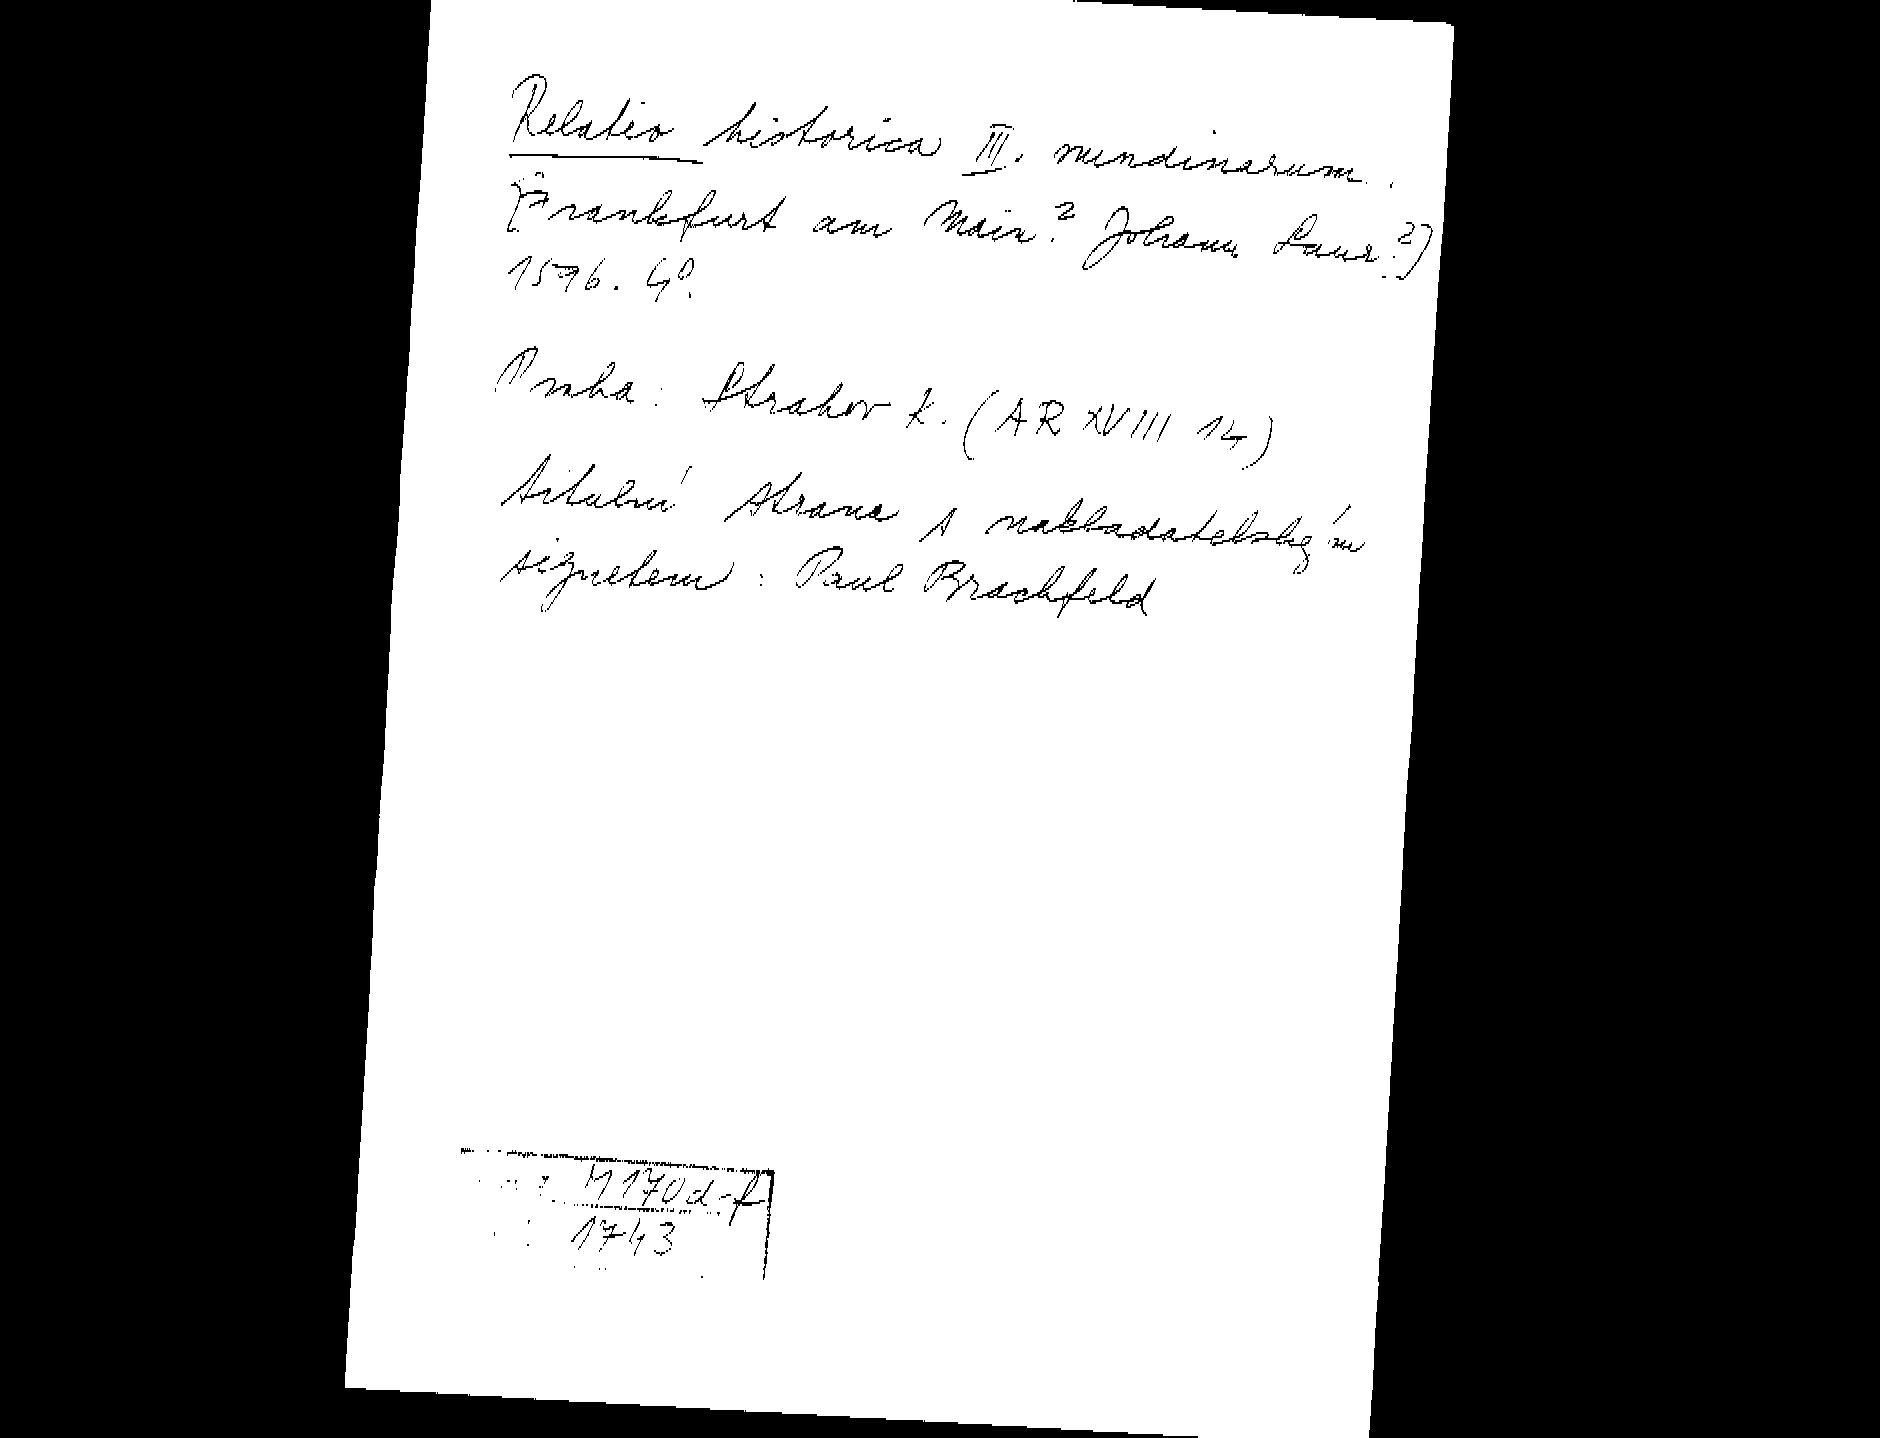 Relatio historica III. nundinarum.
[Frankfurt am Main? Johann Saur?]
1596. 4°.
Praha: Strahov k. (AR XVIII 14)
titulní strana s nakladatelským
signetem: Paul Brachfeld
M170d-f
1743